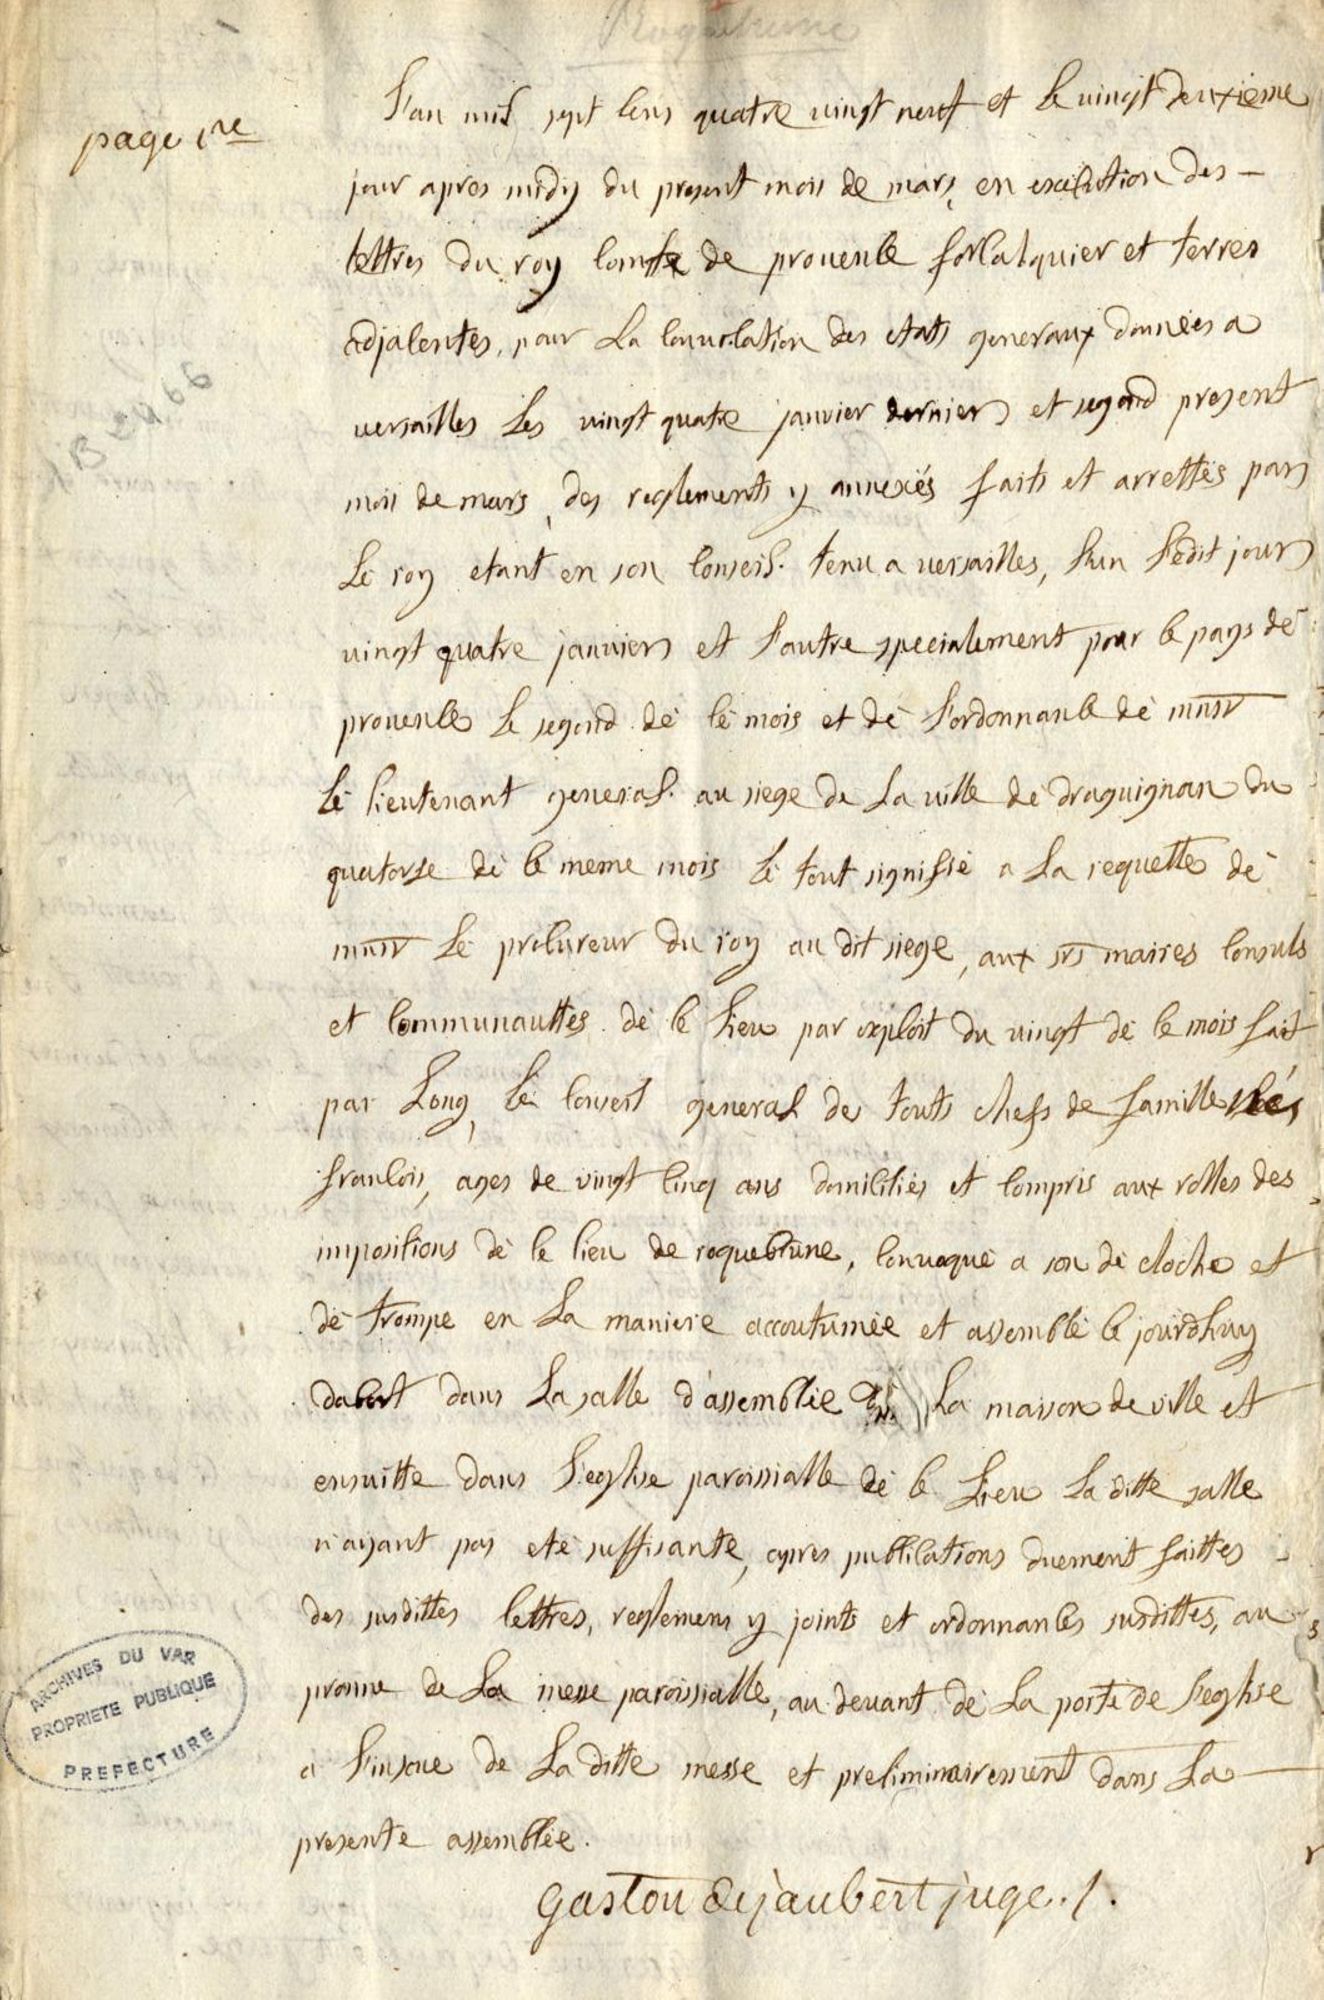 Roquebrune
page 1re
L'an mil sept cens quatre vingt neuf et le vingt deuxieme
jour apres midy du present mois de mars, en execution des
lettres du roy comte de provence forcalquier et terres
adjacentes, pour La convocation des etats generaux données a
versailles Les vingt quatre janvier dernier et segond present
mois de mars, des reglements y annexés faits et arrettés par
Le roy etant en son conseil tenu a versailles, L'un Ledit jour
vingt quatre janvier et L'autre specialement pour le pays de
provence Le segond de ce mois et de L'ordonnance de
Le lieutenant general au siege de La ville de draguignan du
quatorse de ce meme mois Le tout signiffié a La requette de
Le procureur du roy au dit siege, aux srs maires consuls
et communauttés de ce Lieu par exploit du vingt de ce mois fait
par Long, Le conseil general de touts chefs de famille nés
francois, agés de vingt cinq ans domiciliés et compris aux rolles des
impositions de ce lieu de roquebrune, convoqué a son de cloche et
de trompe en La maniere accoutumée et assemblé ce jourd'huy
dabort dans La salle d'assemblée de La maison de ville et
ensuitte dans L'eglise paroissialle de ce Lieu La ditte salle
n'ayant pas eté suffisante, apres publications duement faittes
des susdittes lettres, reglemens y joints et ordonnances susdittes, au
pronne de La messe paroissialle, au devant de La porte de L'eglise
a L'issue de La ditte messe et preliminairement dans La
presente assemblée.
gaston dejaubert juge./.
B 2466
ARCHIVES DU VAR
PROPRIETE PUBLIQUE
PREFECTURE